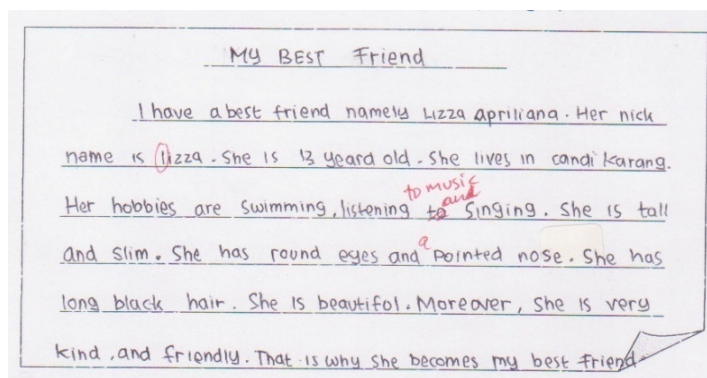 My BEST Friend
I have a best friend namely Lizza Apriliana. Her nick
name is lizza. She is 13 yeard old. She lives in candi karang.
to music
and
Her hobbies are swimming, listening to singing. She is tall
a
and slim. She has round eyes and pointed nose. She has
long black hair. She is beautifol. Moreover, she is very
kind, and friendly. That is why she becomes my best friend